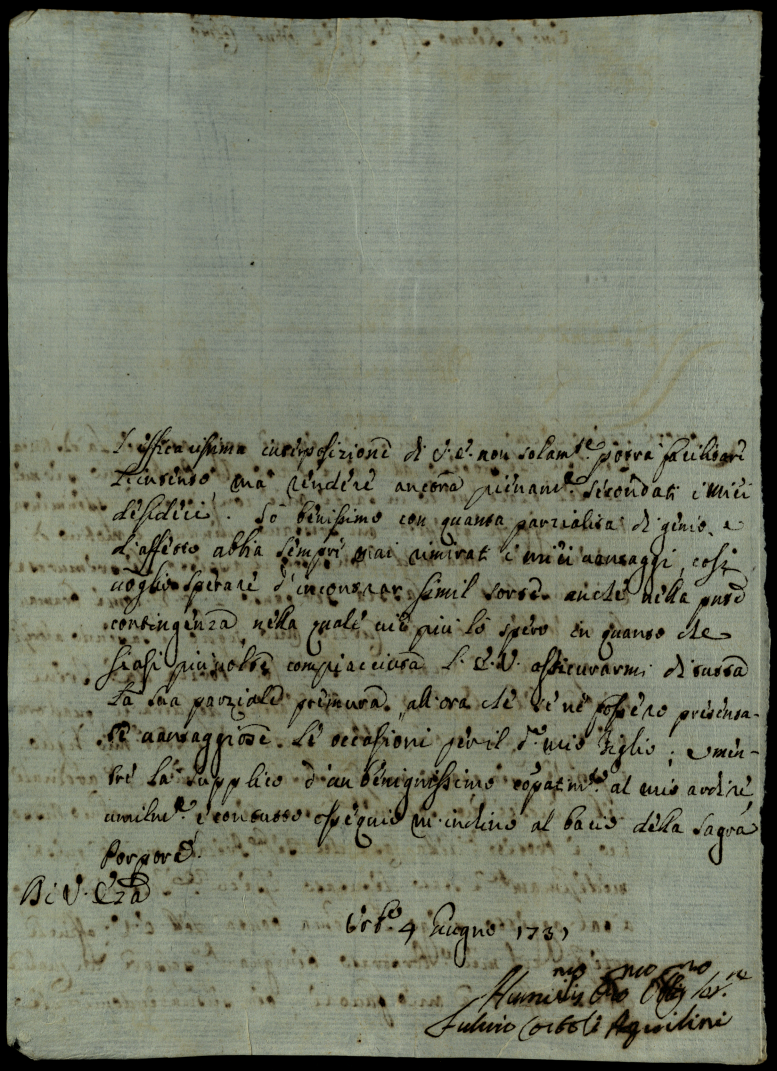 L'efficacissima interposizione di V. E. non solam.te potra facilitare
l'intento, mà rendere ancora pienam.te secondati i miei
desiderj. Sò benissimo con quanta parzialità di genio, e
d'affetto abbia sempre mai rimirati i miei vantaggi, così
voglio sperare d'incontrar simil sorte anche nella pnte
contingenza, nella quale vie più lo spero in quanto che
siasi più volte compiacciuta l'E. V. assicurarmi di tutta
la sua parziale premura, all'ora che se ne fossero presenta-
te vantaggiose le occasioni per il d.o mio figlio; e men-
tre la supplico d'un benignissimo cōpatim.to al mio ardire,
umilm.te e con tutto ossequio m'inchino al bacio della Sagra
Porpora.
Di V. Eza
4 Giugno 1731
Humilis.mo Dmo Obbg.mo Ser.re
Fulvio Corboli Aquilini